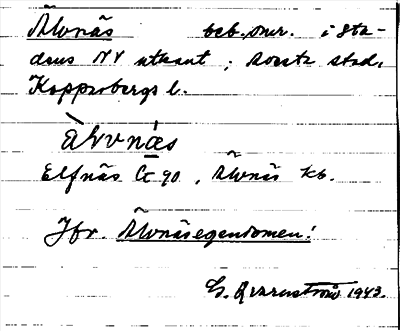 Älvnäs beb.omr. i sta-
dens NV utkant; Avesta stad,
Kopparbergs l.
älvnäs
Elfnäs Ek 90, Älvnäs kb.
Jfr. Älvnäsegendomen!
G. Qvarnström 1943.